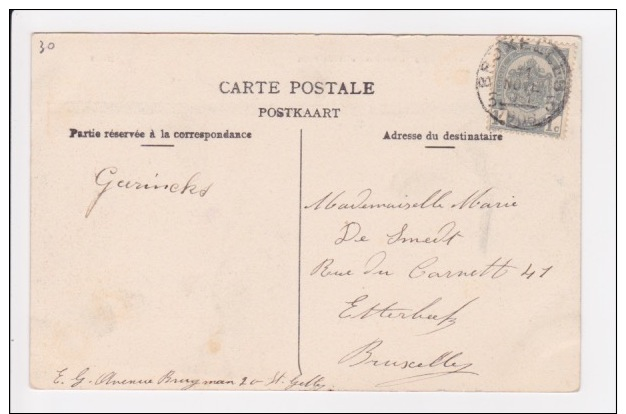 30
BRUXELLES
1c
CARTE POSTALE
POSTKAART
Partie réservée à la correspondance
Adresse du destinataire
Gurincks
Mademoiselle Marie
De Smedt
Rue du Cornett 41
Etterbeek
Bruxelles
E. G. Avenue Brugman 20 St. Gilles